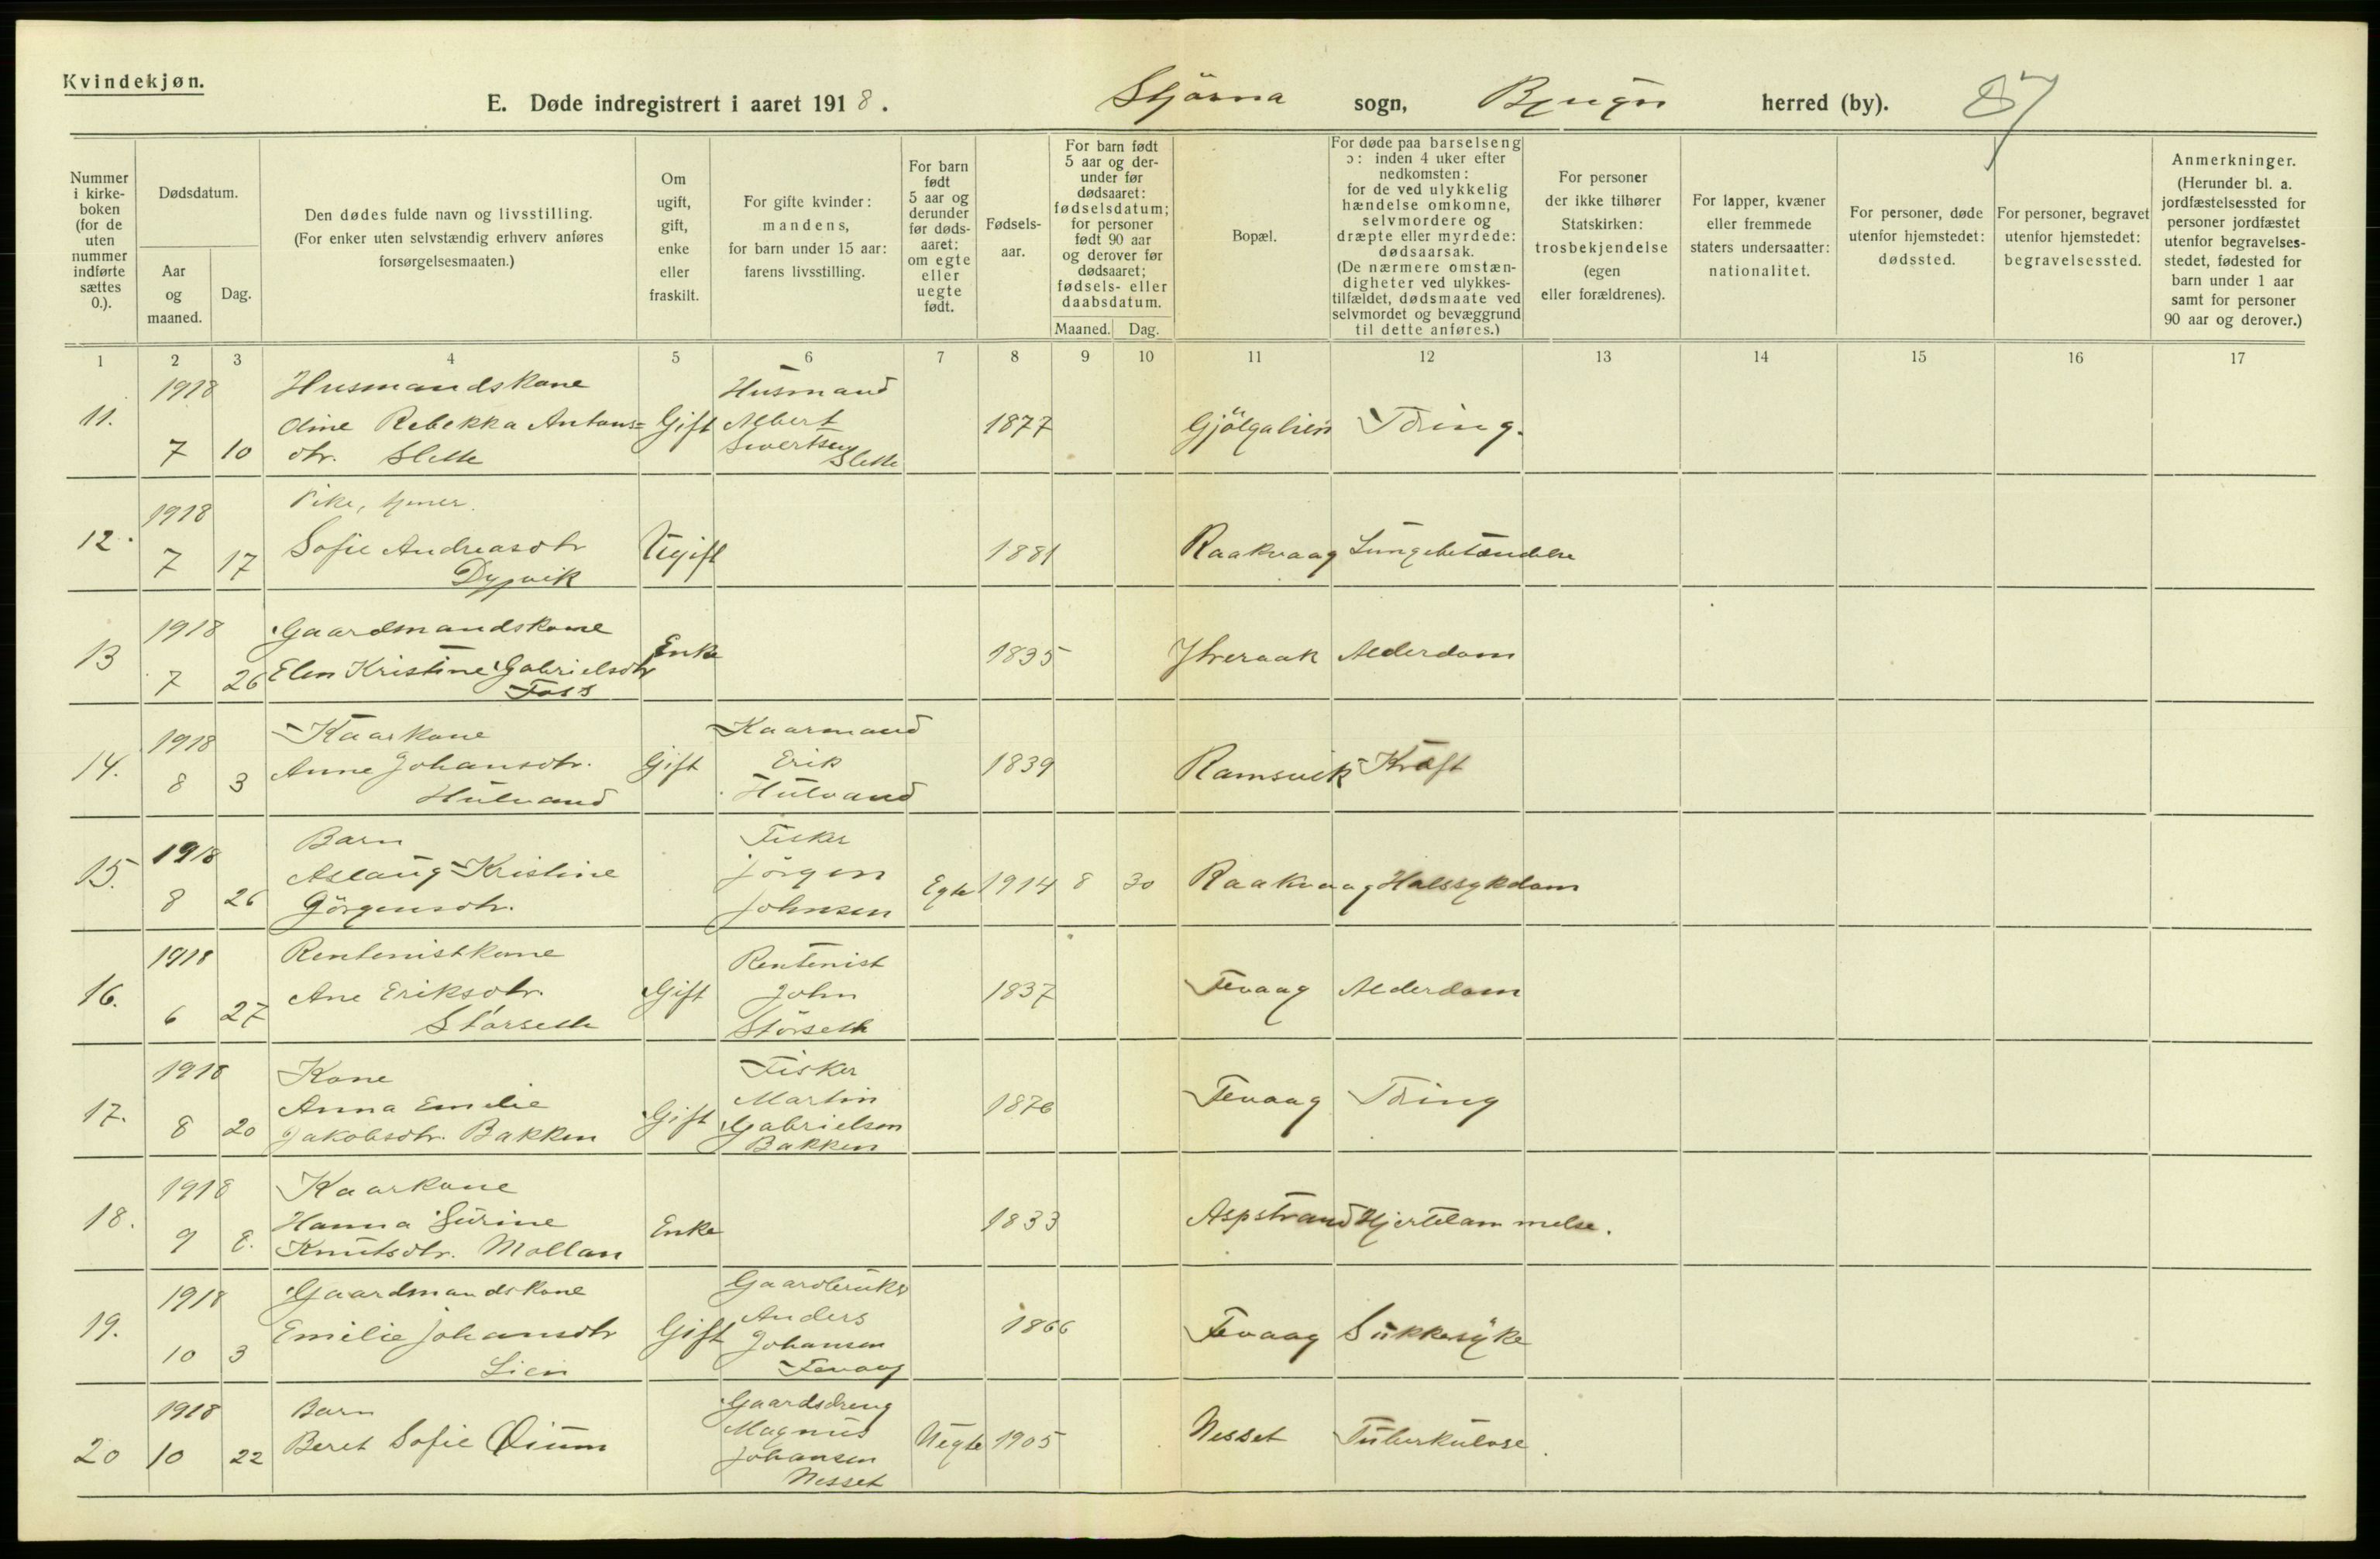 Kvindekjøn.
E. Døde indregistrert i aaret 1918. Stjörna sogn, Bjugn herred (by). 87
Nummer i kirkeboken (for de uten nummer indførte sættes 0.).
Dødsdatum.
Aar og maaned.
Dag.
Den dødes fulde navn og livsstilling.
(For enker uten selvstændig erhverv anføres forsørgelsesmaaten.)
Om ugift, gift, enke eller fraskilt.
For gifte kvinder: mandens, for barn under 15 aar: farens livsstilling.
For barn født 5 aar og derunder før dødsaaret: om egte eller uegte født.
Fødselsaar.
For barn født 5 aar og derunder før dødsaaret: fødselsdatum; for personer født 90 aar og derover før dødsaaret; fødsels- eller daabsdatum.
Maaned. Dag.
Bopæl.
For døde paa barselseng ɔ: inden 4 uker efter nedkomsten: for de ved ulykkelig hændelse omkomne, selvmordere og dræpte eller myrdede: dødsaarsak.
(De nærmere omstændigheter ved ulykkestilfældet, dødsmaate ved selvmordet og bevæggrund til dette anføres.)
For personer der ikke tilhører Statskirken: trosbekjendelse (egen eller forældrenes).
For lapper, kvæner eller fremmede staters undersaatter: nationalitet.
For personer, døde utenfor hjemstedet: dødssted.
For personer, begravet utenfor hjemstedet: begravelsessted.
Anmerkninger.
(Herunder bl. a. jordfæstelsessted for personer jordfæstet utenfor begravelsesstedet, fødested for barn under 1 aar samt for personer 90 aar og derover.)
1 2 3 4 5 6 7 8 9 10 11 12 13 14 15 16 17
1918 Husmandskone Husmand
11. Rebekka Antons= Gift Albert 1877 Tæring.
7 10 dtr. Slette Sivertsen Slette
1918 Pike,
12. Sofie Andreasdtr Ugift 1881 Raakvaag Lungebetændelse
7 17 Dypvik
1918 Gaardmandskone
13 Enke 1835 Ytreraak Alderdom
7 26 Elen Kristine Gabrielsdtr
Foss
1918 Kaarkone Kaarmand
14. Anne Johansdtr. Gift Erik 1839 Ramsvik Kræft
8 3 Hulvand Hulvand
1918 Barn Fisker
15. Aslaug Kristine Jörgen Egte 1914 8 30 Raakvaag Halssykdom
8 26 Jörgensdtr. Johnsen
1918 Rentenistkone Rentenist
16. Ane Eriksdtr. Gift John 1837 Fevaag Alderdom
6 27 Störseth Störseth
1918 Kone Fisker
17. Anna Emilie Gift Martin 1876 Fevaag Tæring
8 20 Jakobsdtr. Bakken Gabrielsen
Bakken
1918 Kaarkone
18. Hanna Surine Enke 1833 Aspstrand Hjertelammelse.
9 8. Knutsdtr. Mollan
1918 Gaardmandskone Gaardbruker
19. Emilie Johansdtr Gift Anders 1866 Fevaag Sukkersyke
10 3 Lien Johansen
Fevaag
1918 Barn Gaardsdreng
20 Beret Sofie Magnus Uegte 1905 Nesset Tuberkulose.
10 22 Johansen
Nesset